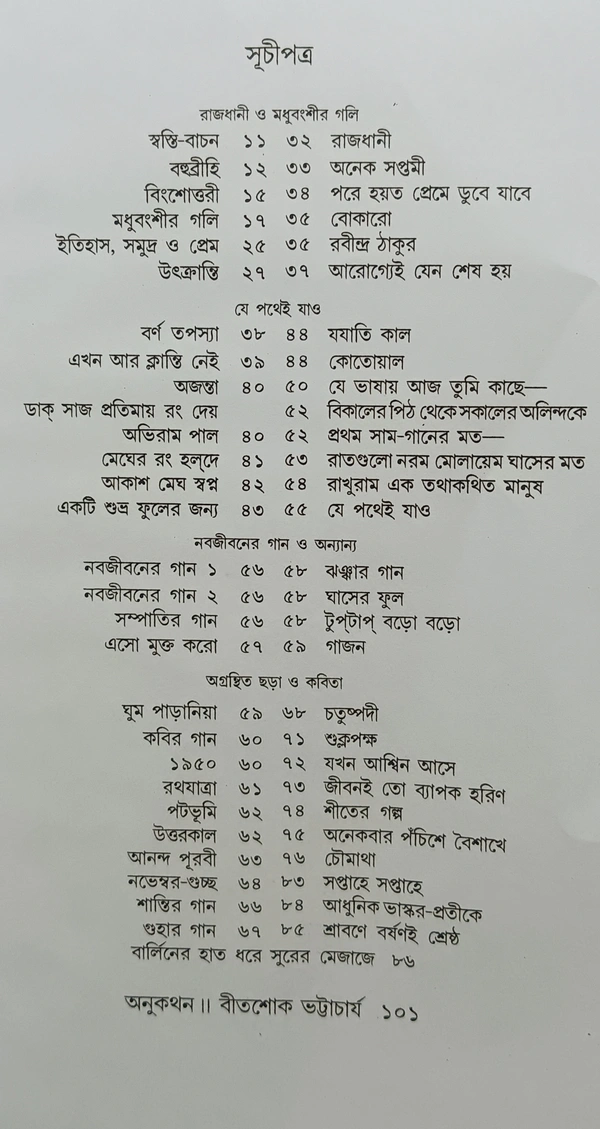 সূচীপত্র
রাজধানী ও মধুবংশীর গলি
স্বস্তি-বাচন ১১ ৩২ রাজধানী
বহুব্রীহি ১২ ৩৩ অনেক সপ্তমী
বিংশোত্তরী ১৫ ৩৪ পরে হয়ত প্রেমে ডুবে যাবে
মধুবংশীর গলি ১৭ ৩৫ বোকারো
ইতিহাস, সমুদ্র ও প্রেম ২৫ ৩৫ রবীন্দ্র ঠাকুর
উৎক্রান্তি ২৭ ৩৭ আরোগ্যেই যেন শেষ হয়
যে পথেই যাও
বর্ণ তপস্যা ৩৮ ৪৪ যযাতি কাল
এখন আর ক্লান্তি নেই ৩৯ ৪৪ কোতোয়াল
অজন্তা ৪০ ৫০ যে ভাষায় আজ তুমি কাছে—
ডাক্ সাজ প্রতিমায় রং দেয় ৫২ বিকালের পিঠ থেকে সকালের অলিন্দকে
অভিরাম পাল ৪০ ৫২ প্রথম সাম-গানের মত—
মেঘের রং হল্‌দে ৪১ ৫৩ রাতগুলো নরম মোলায়েম ঘাসের মত
আকাশ মেঘ স্বপ্ন ৪২ ৫৪ রাখুরাম এক তথাকথিত মানুষ
একটি শুভ্র ফুলের জন্য ৪৩ ৫৫ যে পথেই যাও
নবজীবনের গান ও অন্যান্য
নবজীবনের গান ১ ৫৬ ৫৮ ঝঞ্ঝার গান
নবজীবনের গান ২ ৫৬ ৫৮ ঘাসের ফুল
সম্পাতির গান ৫৬ ৫৮ টুপ্‌টাপ্ বড়ো বড়ো
এসো মুক্ত করো ৫৭ ৫৯ গাজন
অগ্রন্থিত ছড়া ও কবিতা
ঘুম পাড়ানিয়া ৫৯ ৬৮ চতুষ্পদী
কবির গান ৬০ ৭১ শুক্লপক্ষ
১৯৫০ ৬০ ৭২ যখন আশ্বিন আসে
রথযাত্রা ৬১ ৭৩ জীবনই তো ব্যাপক হরিণ
পটভূমি ৬২ ৭৪ শীতের গল্প
উত্তরকাল ৬২ ৭৫ অনেকবার পঁচিশে বৈশাখে
আনন্দ পূরবী ৬৩ ৭৬ চৌমাথা
নভেম্বর-গুচ্ছ ৬৪ ৮৩ সপ্তাহে সপ্তাহে
শান্তির গান ৬৬ ৮৪ আধুনিক ভাস্কর-প্রতীকে
গুহার গান ৬৭ ৮৫ শ্রাবণে বর্ষণই শ্রেষ্ঠ
বার্লিনের হাত ধরে সুরের মেজাজে ৮৬
অনুকথন ৷৷ বীতশোক ভট্টাচার্য ১০১